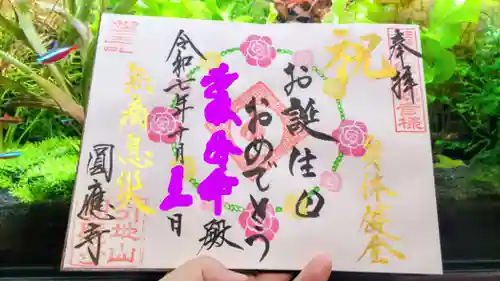 奉拝
祝
身体安全
お誕生日
おめでとう
殿
令和七年十月
日
無病息災
圓應寺